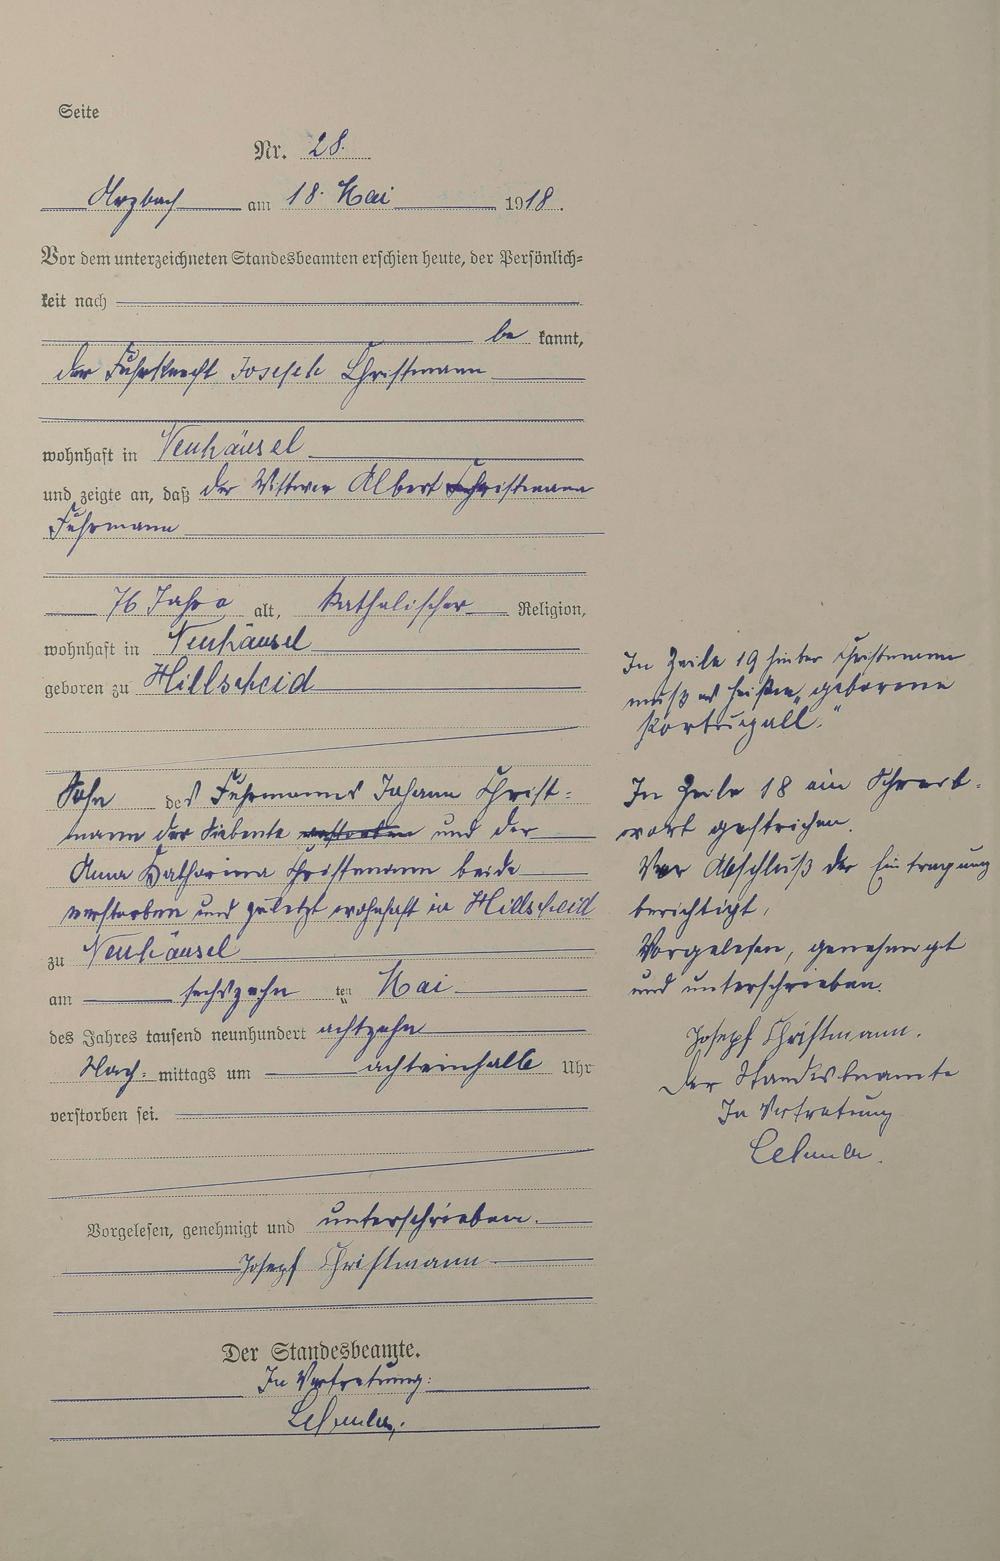 Seite
Nr. 28.
Arzbach am 18. Mai 1918.
Vor dem unterzeichneten Standesbeamten erschien heute, der Persönlich=
keit nach
be kannt,
der Fuhrknecht Joseph Christmann
wohnhaft in Neuhäusel
und zeigte an, daß der Wittwer Albert Christmann
Fuhrmann
76 Jahre alt, katholischer Religion,
wohnhaft in Neuhäusel
geboren zu Hillscheid
Sohn des Fuhrmannes Johann Christ=
mann der Siebente verstorben und der
Anna Katharina Christmann beide
verstorben und zuletzt wohnhaft in Hillscheid
zu Neuhäusel
am sechszehn ten Mai
des Jahres tausend neunhundert achtzehn
Nach= mittags um achteinhalb Uhr
verstorben sei.
Vorgelesen, genehmigt und unterschrieben.
Josepf Christmann
Der Standesbeamte.
In Vertretung:
In Zeile 19 hinter Christmann
muß es heißen „geborene
Portugall."
In Zeile 18 ein Schreib=
wort gestrichen.
Vor Abschluß der Eintragung
berichtigt,
Vorgelesen, genehmigt
und unterschrieben.
Josepf Christmann.
Der Standesbeamte
In Vertretung